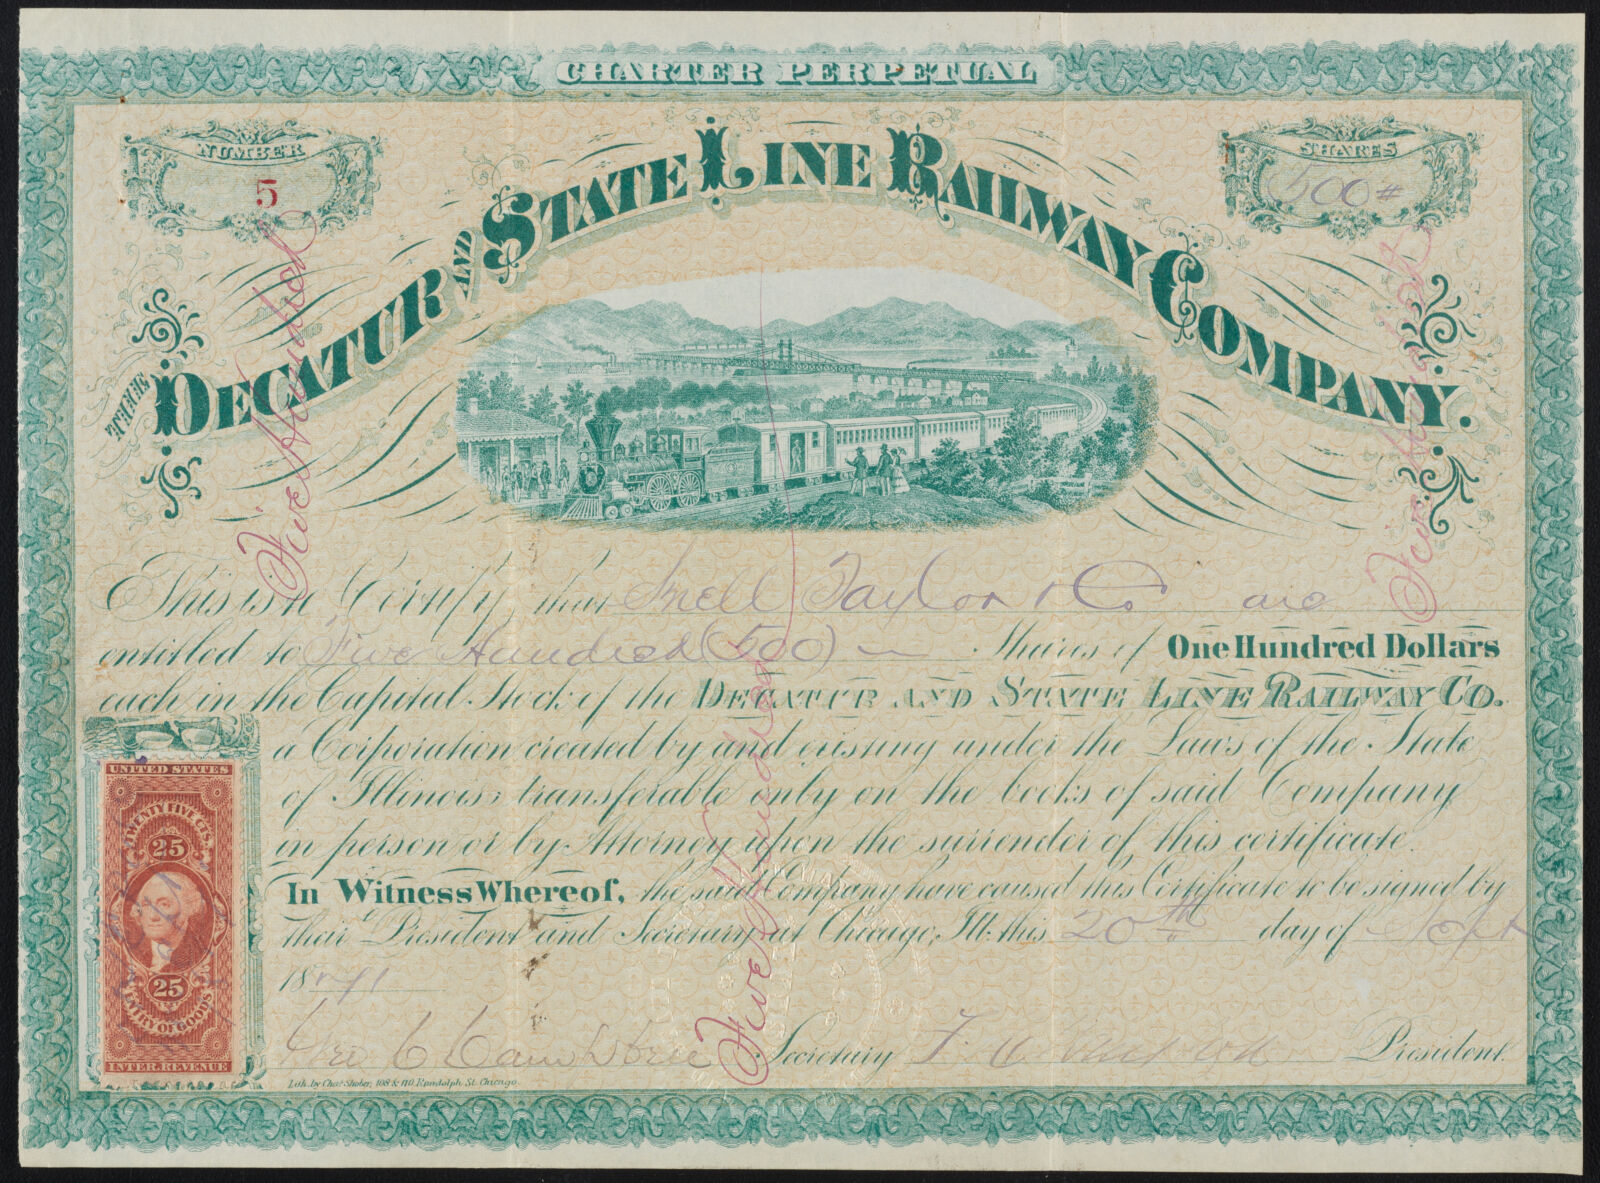 CHARTER PERPETUAL
NUMBER
5
SHARES
500
THE DECATUR AND STATE LINE RAILWAY COMPANY.
Five Hundred
Five Hundred
Five Hundred
This is to Certify, that Snell Taylor & Co are
entitled to Five Hundred (500) Shares of One Hundred Dollars
each in the Capital Stock of the DECATUR AND STATE LINE RAILWAY CO.
a Corporation created by and existing under the Laws of the State
of Illinois; transferable only on the books of said Company
in person or by Attorney upon the surrender of this certificate.
In Witness Whereof, the said Company have caused this Certificate to be signed by
their President and Secretary at Chicago, Ill. this 20th day of Sept
1871
Geo C Campbell Secretary President.
Lith. by Chas. Shober, 108 & 110 Randolph St. Chicago.
UNITED STATES
TWENTY FIVE CTS.
25
25
ENTRY OF GOODS
INTER. REVENUE